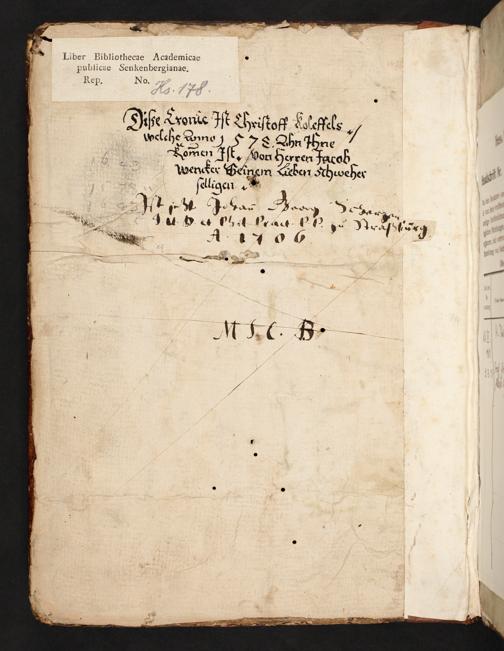 Liber Bibliothecae Academicae
publicae Senkenbergianae.
Rep. No. Hs. 178.
Diße Cronic Ist Christoff Koleffels
welche Anno 1578. Ahn Ihne
Komen Ist. von Herren Jacob
wencker Seinem Lieben schweher
selligen
Ist jetzt Johan Georg
zu Straßburg
A 1706
MSC. B.